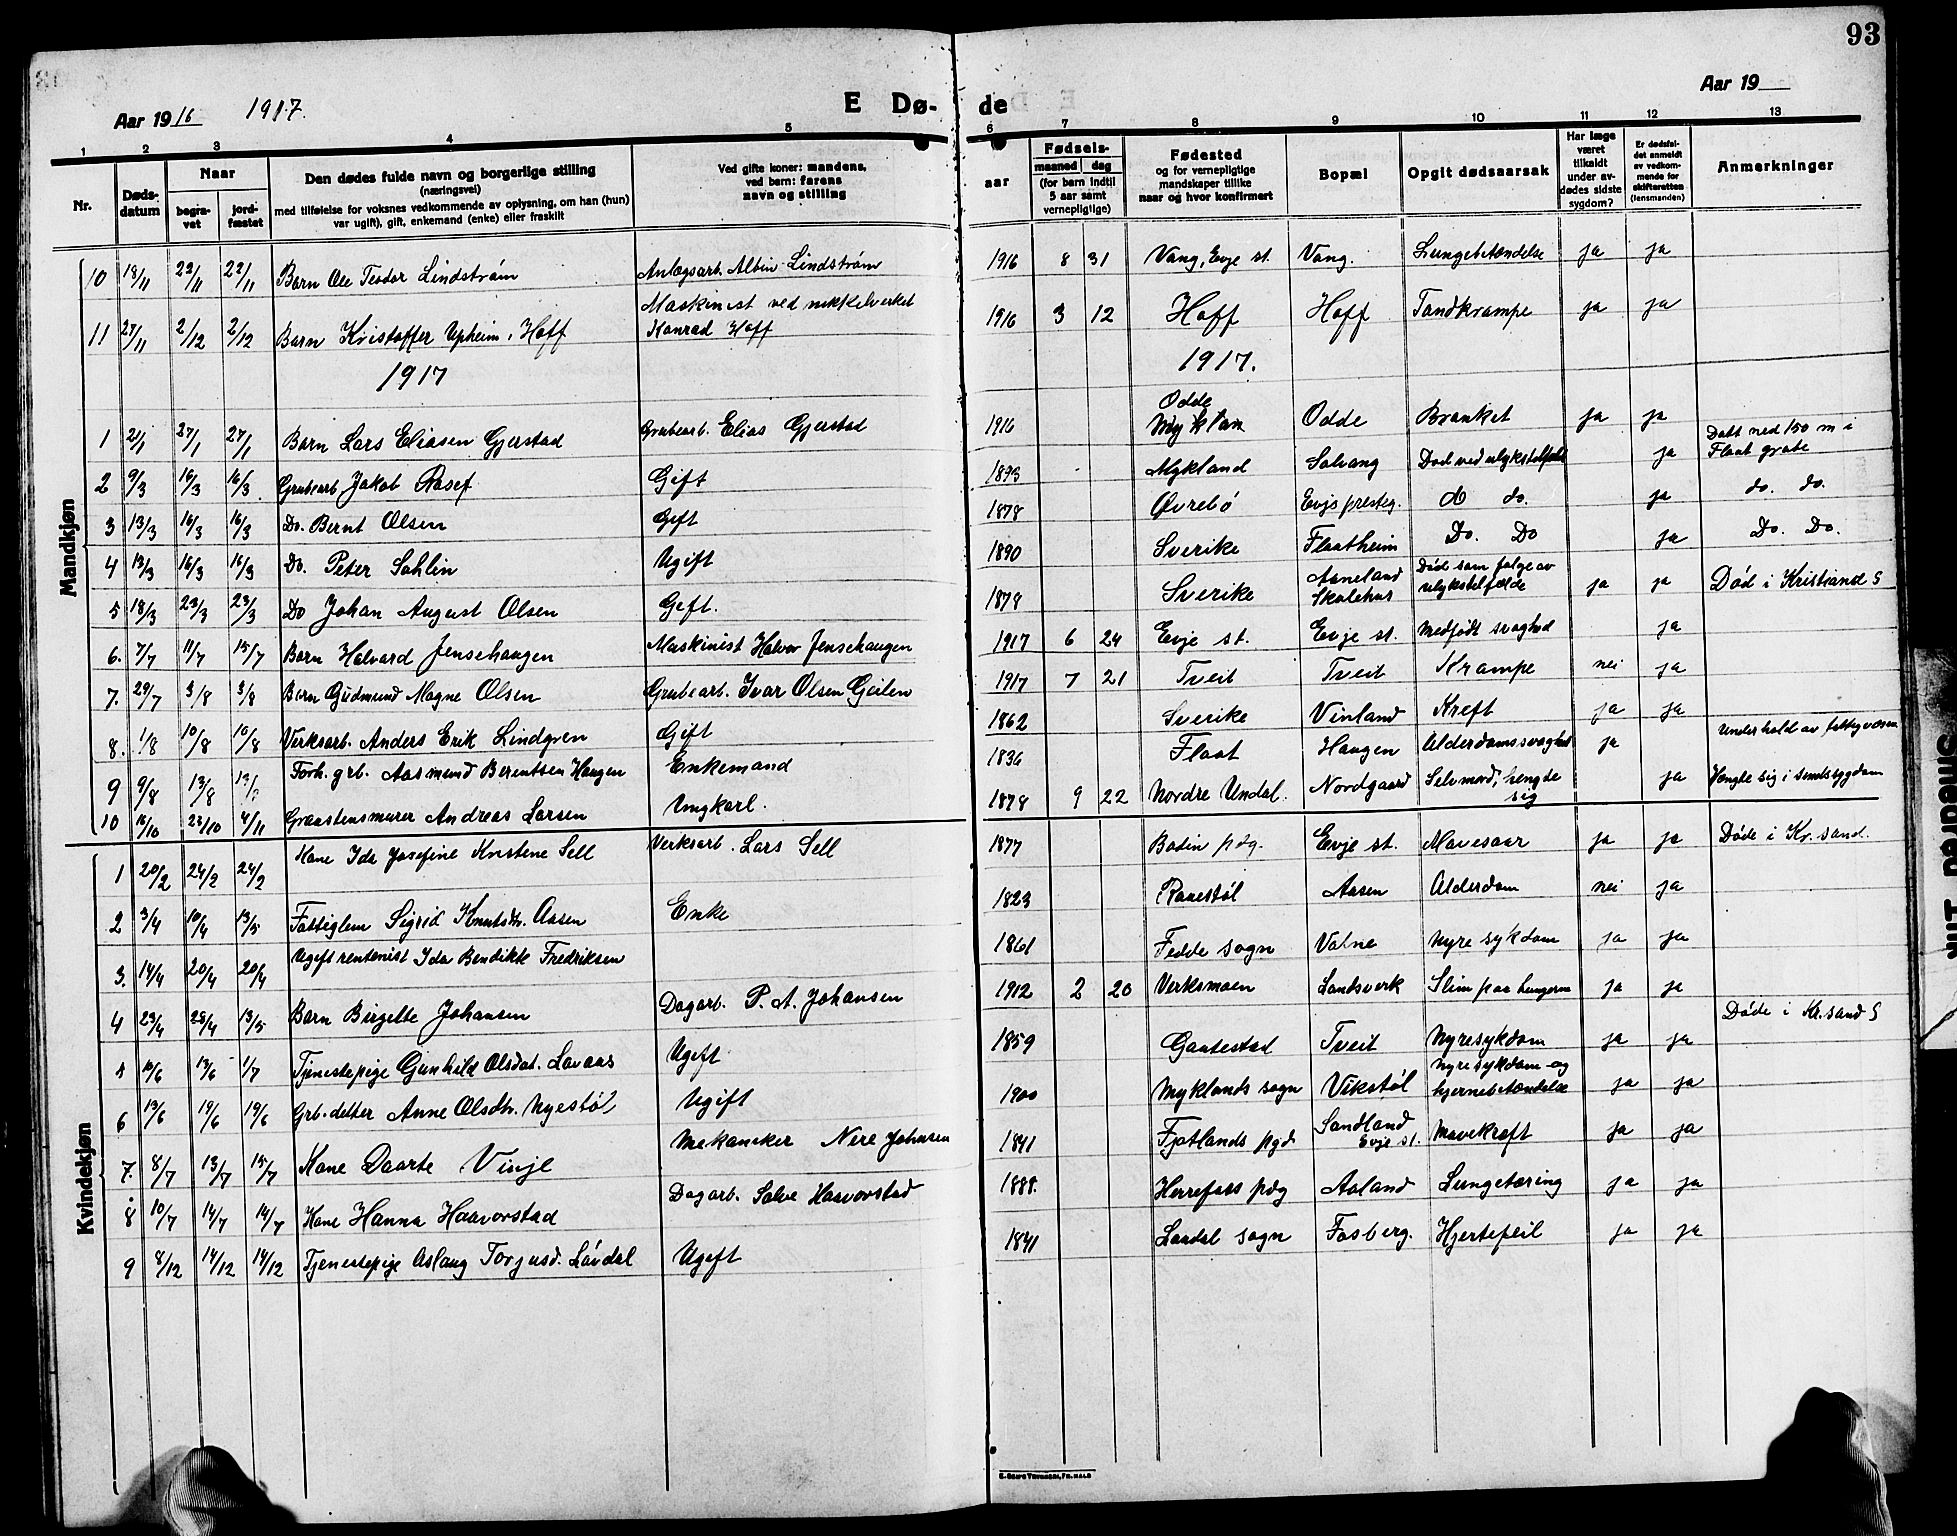 93
Aar 1916 1917. E Dø- de Aar 19
1 2 3 4 5 6 7 8 9 10 11 12 13
Nr. Døds-datum Naar begra-vet jord-fæstet Den dødes fulde navn og borgerlige stilling (næringsvei) med tilføielse for voksnes vedkommende av oplysning, om han (hun) var ugift), gift, enkemand (enke) eller fraskilt Ved gifte koner: mandens, ved barn: farens navn og stilling aar Fødsels- maaned dag (for barn indtil 5 aar samt vernepligtige) Fødested og for vernepligtige mandskaper tillike naar og hvor konfirmert Bopæl Opgit dødsaarsak Har læge været tilkaldt under av-dødes sidste sygdom? Er dødsfal-det anmeldt av vedkom-mende for skifteretten (lensmanden) Anmerkninger
Mandkjøn
10 18/11 22/11 22/11 Barn Ole Teodor Lindstrøm Anlægsarb. Albin Lindstrøm 1916 8 31 Vang, Evje st. Vang. Lungebetændelse ja ja
11 27/11 2/12 2/12 Barn Kristoffer Upheim, Hoff Maskinist ved nikkelverket Konrad Hoff 1916 3 12 Hoff Hoff Tandkrampe ja ja
1917 1917.
1 21/1 27/1 27/1 Barn Lars Eliasen Gjerstad Grubearb. Elias Gjerstad 1916 Odde Odde Bronket ja ja
2 9/3 16/3 16/3 Grubearb Jakob Rosef Gift 1893 Mykland Solvang Død ved ulykstelfæld ja Datt ned 150 m i Flaat grube
3 13/3 16/3 16/3 Do. Bernt Olsen Gift 1878 Øvrebø Evjs presteg. do do. ja do. do.
4 13/3 16/3 16/3 Do. Peter Sahlin Ugift 1890 Sverike Flaatheim Do. Do ja Do. Do.
5 18/3 23/3 23/3 Do Johan August Olsen Gift. 1878 Sverike Aaneland Skolehus Død som følge av ulykstelfælde ja ja Død i Kristiand S
6. 7/7 11/7 15/7 Barn Halvard Jensehaugen Maskinist Halvor Jensehaugen 1917 6 24 Evje st. Evje st. Medfødt svaghed ja
7. 29/7 3/8 3/8 Barn Gudmund Magne Olsen Grubearb. Ivar Olsen Geilen 1917 7 21 Tveit Tveit Krampe nei ja
8. 1/8 10/8 10/8 Verksarb. Anders Erik Lindgren Gift 1862 Sverike Vinland Kreft ja ja
9 9/8 13/8 13/8 Forh. grb. Aasmund Berentsen Haugen Enkemand 1836 Flaat Haugen Alderdomssvaghed ja Underhold av fattigvæsen
10 16/10 23/10 4/11 Graastensmurer Andreas Larsen Ungkarl. 1878 9 22 Nordre Undal. Nordgaard Selvmord, hengte sig ja Hængte sig i sindssygdom
Kvindekjøn
1 20/2 24/2 24/2 Kone Ida Josefine Kristene Sell Verksarb. Lars Sell 1877 Bodin pdg. Evje st. Mavesaar ja ja Døde i Kr.sand.
2 3/4 10/4 13/5 Fattiglem Sigrid Knutsdtr. Aasen Enke 1823 Ravestøl Aasen Alderdom nei ja
3. 14/4 20/4 20/4 Ugift rentenist Ida Bendikte Fredriksen 1861 Fedde sogn Vatne Nyre sykdom ja ja
4 23/4 28/4 13/5 Barn Birgitte Johansen Dagarb. P. A. Johansen 1912 2 20 Verksmoen Landsverk Slim paa lungerne ja ja
5 10/6 13/6 1/7 Tjenestepige Gunhild Olsdat. Lavaas Ugift 1859 Gautestad Tveit Nyresykdom ja ja Døde i Kr.sand S
6 13/6 19/6 19/6 Grb. detter Anne Olsdtr. Nyestøl Ugift 1900 Myklands sogn Vikstøl Nyresykdom og hjernebetændelse ja ja
7. 8/7 13/7 15/7 Kone Daarte Vinje Mekaniker Nere Johnsen 1841 Fjotlands pgd Sandland Evje st. Mavekræft ja ja
8 10/7 14/7 14/7 Kone Hanna Haavorstad Dagarb. Salve Haavorstad 1888. Herrefoss pdg Aaland Lungetæring ja ja
9 8/12 14/12 14/12 Tjenestepige Aslaug Torjusd. Løvdal Ugift 1841 Laudal sogn Fosberg. Hjertefeil ja ja